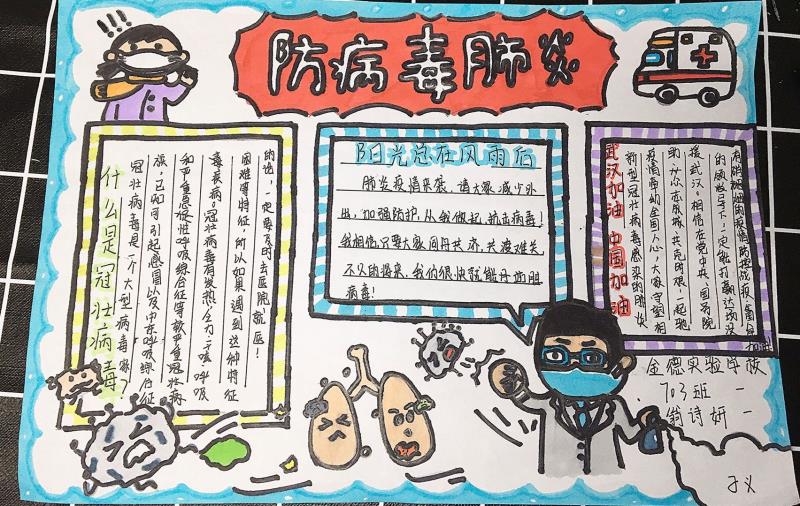 防病毒肺炎
什么是冠壮病毒
冠壮病毒是一个大型病毒家
族，已知可引起感冒以及中东呼吸综合征
和严重急性呼吸综合征等较严重冠壮病
毒疾病。冠壮病毒有发热、乏力、咳、呼吸
困难等特征，所以如果遇到这种特征
的话，一定要及时去医院就医！
阳光总在风雨后
肺炎疫情来袭，请大家减少外
出，加强防护，从我做起，抗击病毒！
我相信，只要大家同舟共济，共渡难关
不久的将来，我们很快就能
病毒！
武汉加油 中国加油
新型冠状病毒感染的肺炎
疫情牵动全国人心，大家守望相
助，众志成城，共克时艰，一起驰
援武汉。相信在党中央、国务院
的领导下，一定能打赢这场没
有硝烟的疫情防控战疫
金德实验学校
703班
翁诗妍